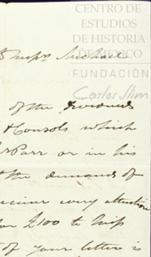 CENTRO DE
ESTUDIOS
DE HISTORIA
DE MÉXICO
FUNDACIÓN
Carlos Slim
of the
Consols which
Parr or in his
the demands of
receive every attention
for £100 to Miss
of your letter is